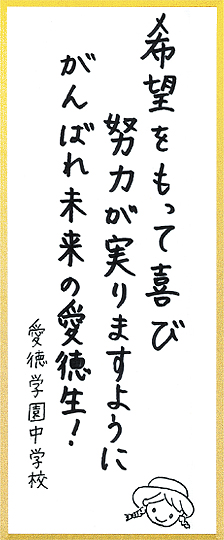 希望をもって喜び
努力が実りますように
がんばれ未来の愛徳生!
愛徳学園中学校